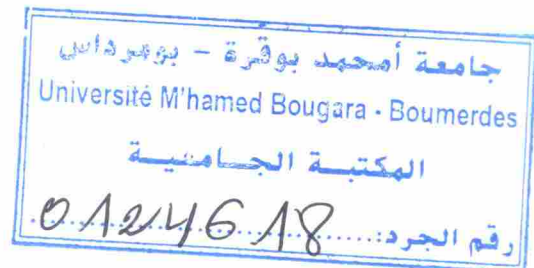 جامعة أمحمد بوقرة - بومرداس
Université M'hamed Bougara - Boumerdes
المكتبة الجامعية
رقم الجرد: 0124618